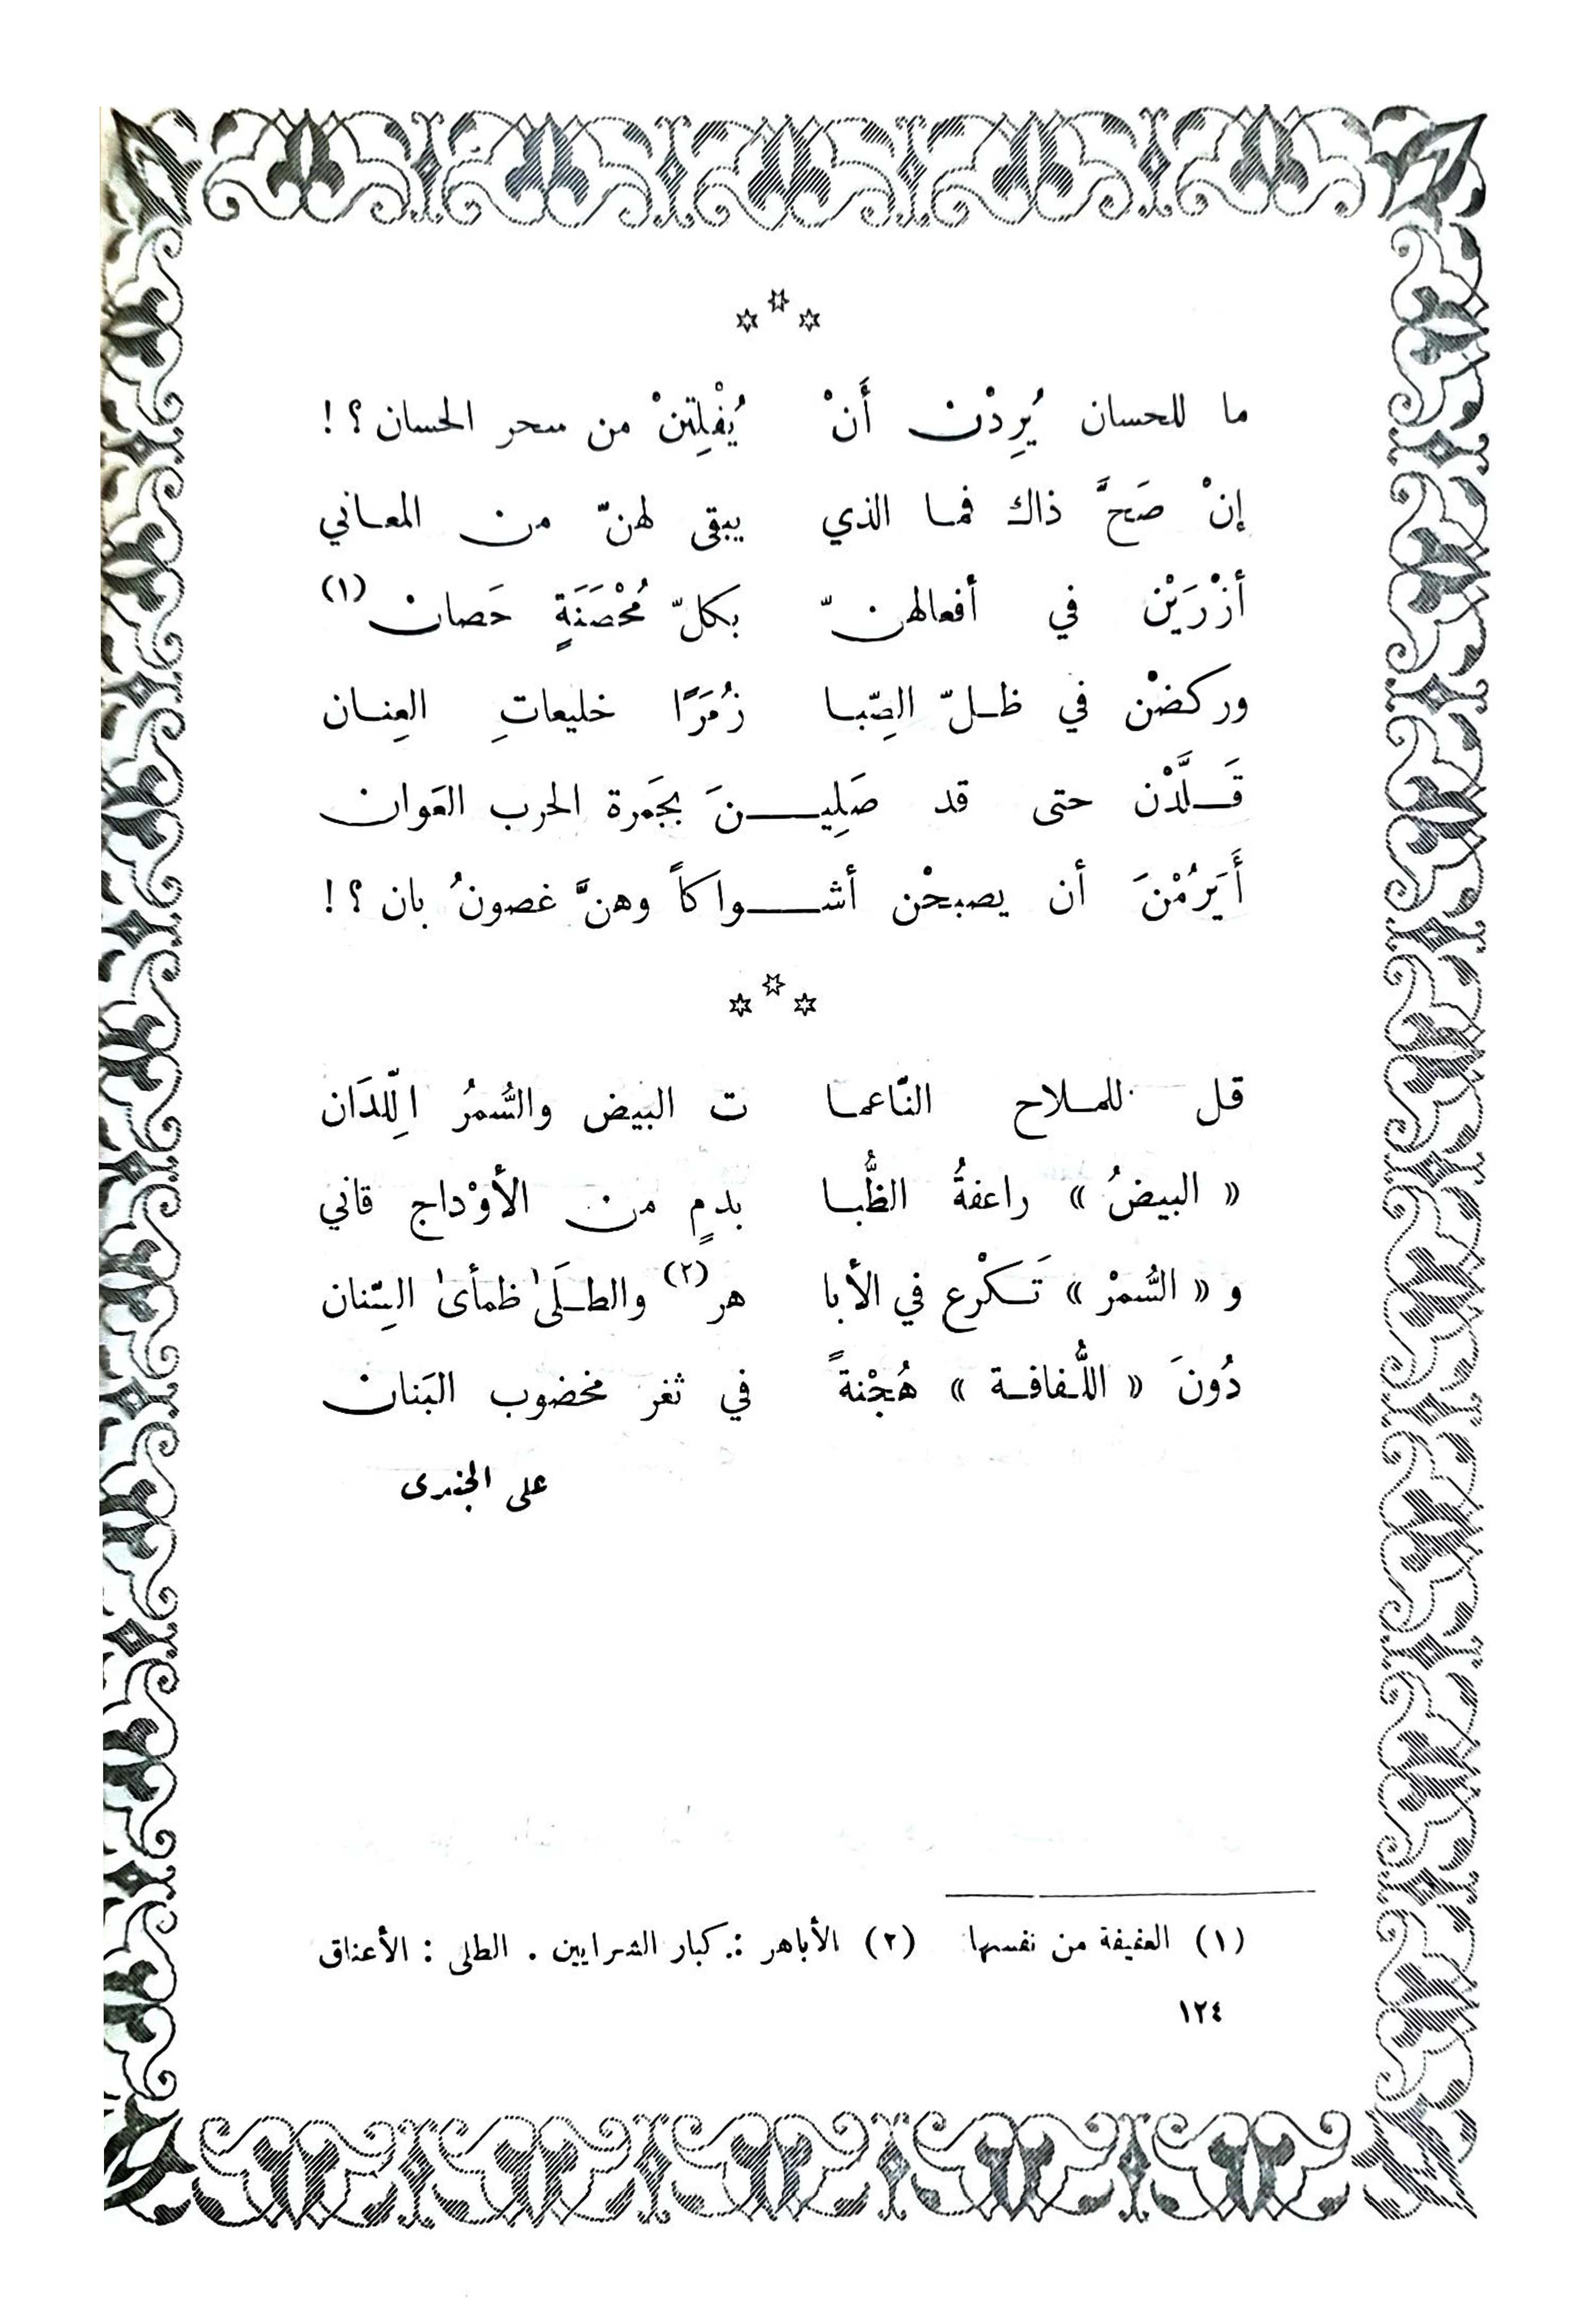 ما للحسان يُرِدْن أَنْ يُفْلِتَنْ من سحر الحسان ؟ !
إنْ صَحَّ ذاك فمـا الذي يبقى لهنّ من المعـاني
أزْرَيْن في أفعالهنّ بكلّ مُحْصَنَةٍ حَصان (١)
وركضْن في ظـلّ الصِّبـا زُمَرًا خليعاتِ العِنـان
قَـلَّدْن حتى قد صَلِيـنَ بجَمرة الحرب العَوان
أَيَرُمْنَ أن يصبحْن أشـواكاً وهنَّ غصونُ بان ؟ !
قل للمـلاح النّاعمـا ت البيض والسُّمرُ اللِّدَان
« البيضُ » راعفةُ الظُّبـا بدمٍ من الأوْداج قاني
و « السُّمرْ » تَـكْرع في الأبا هر (٢) والطـلَى ظمأى السِّنان
دُونَ « اللُّفافـة » هُجْنةً في ثغر مخضوب البَنان
على الجندى
(١) العفيفة من نفسها (٢) الأباهر : كبار الشرايين . الطلى : الأعناق
١٢٤